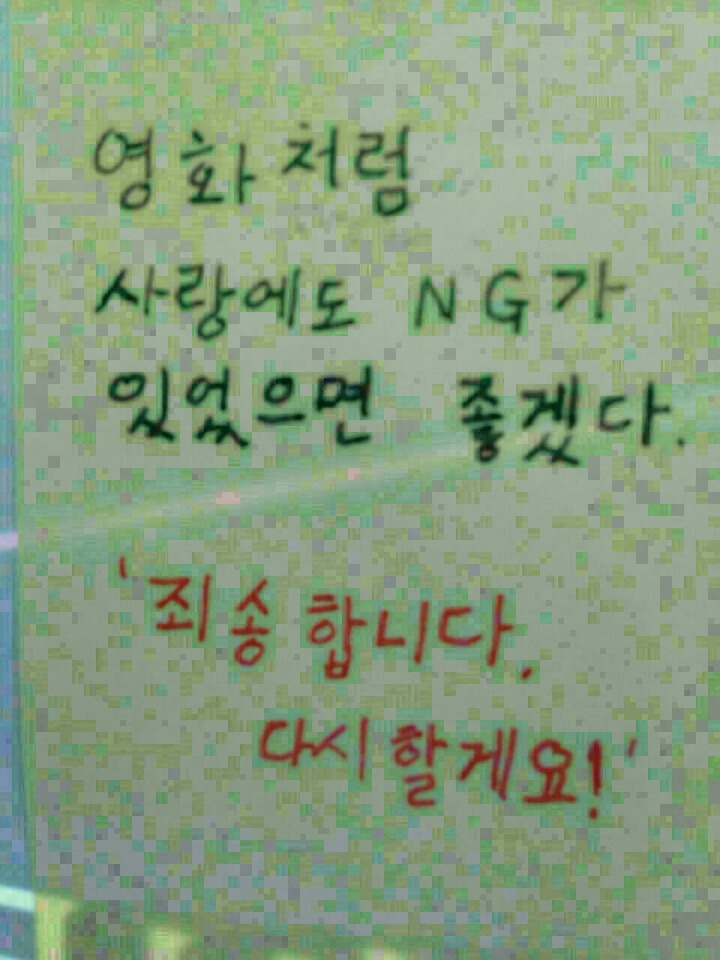 영화처럼
사랑에도 NG가
있었으면 좋겠다.
'죄송합니다.
다시할게요!'